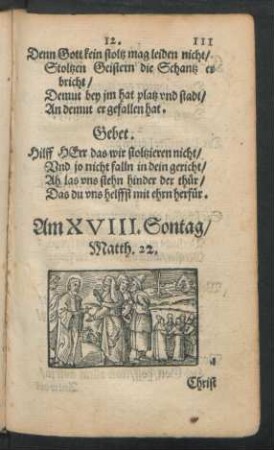 12. 111
Denn Gott kein stoltz mag leiden nicht/
Stoltzen Geistern die Schantz er
bricht/
Demut bey jm hat platz vnd stadt/
An demut er gefallen hat.
Gebet.
Hilff HErr das wir stoltzieren nicht/
Vnd jo nicht falln in dein gericht/
Ah las vns stehn hinder der thür/
Das du vns helffst mit ehrn herfür.
Am XVIII. Sontag/
Matth. 22.
Christ